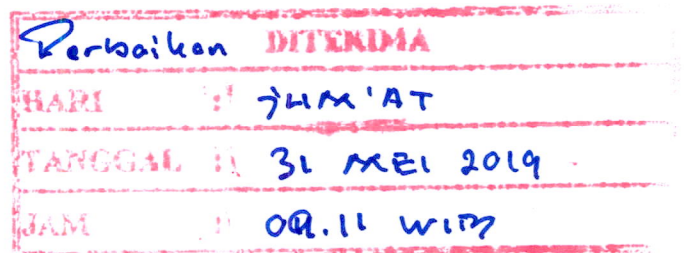 Perbaikan DITERIMA
HARI : JUM'AT
TANGGAL : 31 MEI 2019
JAM : 09.11 WIB